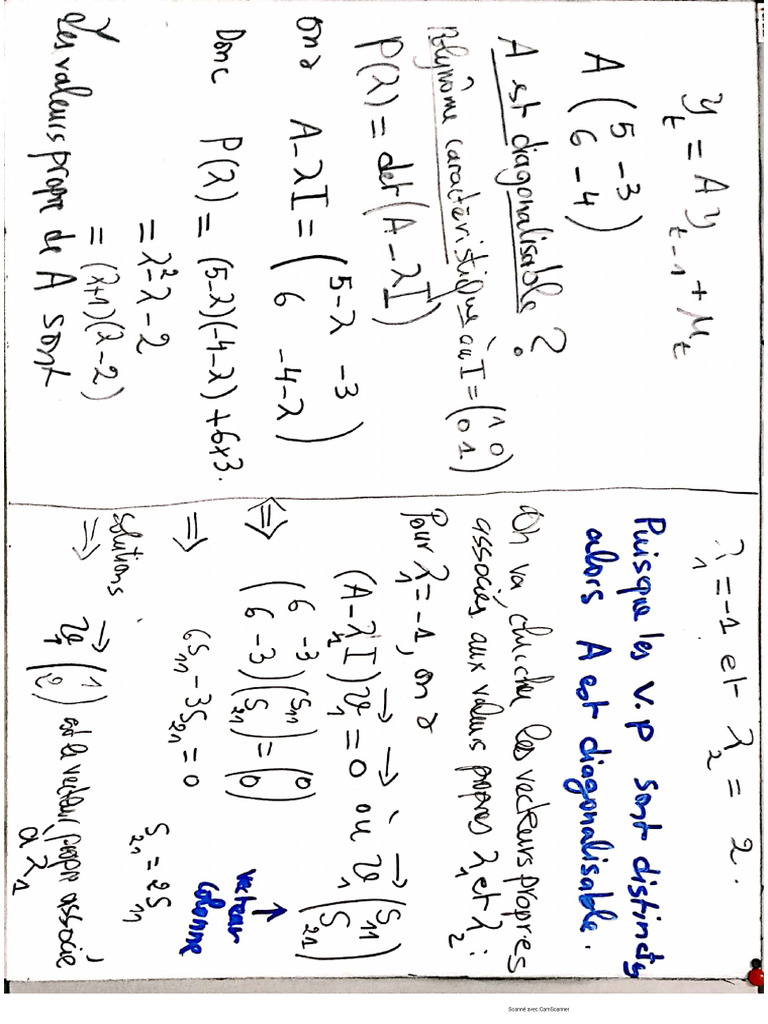 y_t = A y_{t-1} + μ_t
A ( 5 -3
6 -4 )
A est diagonalisable ?
Polynôme caractéristique où I = ( 1 0
0 1 )
P(λ) = det(A - λI)
on a A - λI = ( 5-λ -3
6 -4-λ )
Donc P(λ) = (5-λ)(-4-λ) + 6×3.
= λ² - λ - 2
= (λ+1)(λ-2)
Les valeurs propre de A sont
λ_1 = -1 et λ_2 = 2.
Puisque les v.p sont distincts
alors A est diagonalisable.
On va chercher les vecteurs propres
associés aux valeurs propres λ_1 et λ_2 :
Pour λ_1 = -1, on a
(A - λ_1 I) v⃗_1 = 0⃗ où v⃗_1 ( s_11
s_21 )
⇔ ( 6 -3
6 -3 ) ( s_11
s_21 ) = ( 0
0 )
↑
vecteur
colonne
⇒ 6s_11 - 3s_21 = 0
s_21 = 2s_11
solutions
⇒ v⃗_1 ( 1
2 ) est le vecteur propre associé
à λ_1
Scanné avec CamScanner